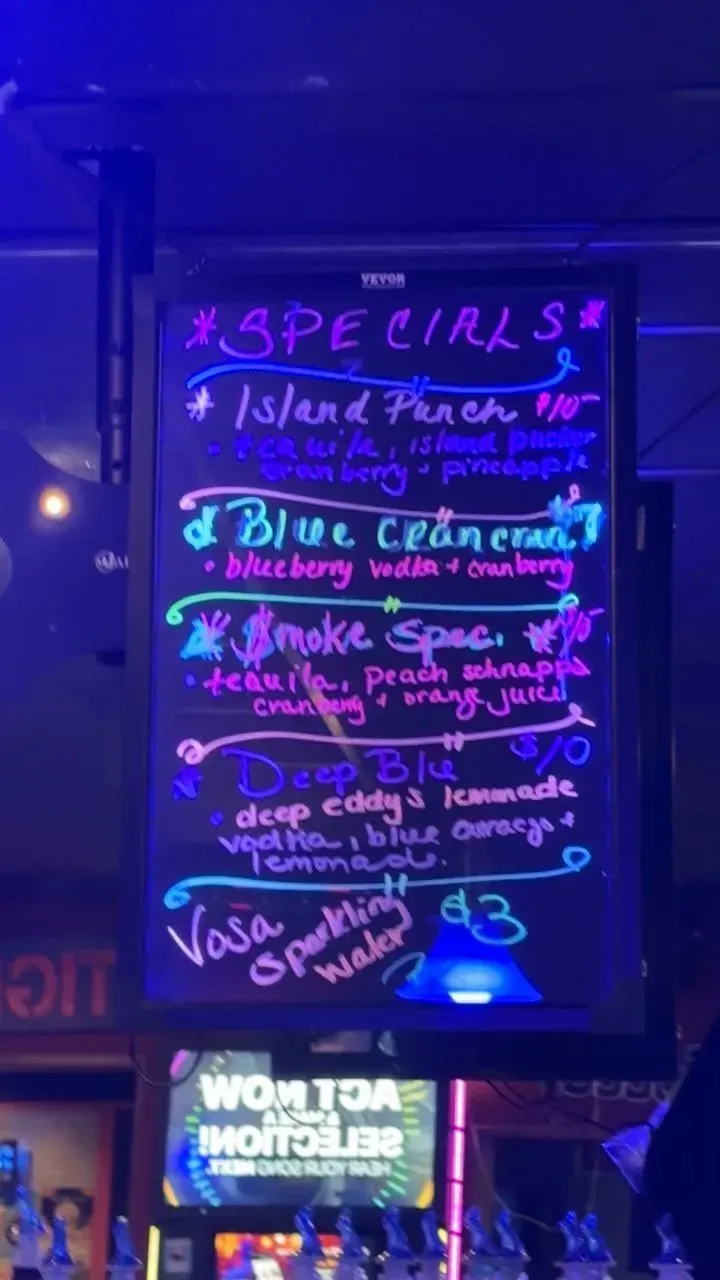 VEVOR
*SPECIALS*
* Island Punch $10
• tequila, island pucker
cranberry + pineapple
Blue Crancran $7
• blueberry vodka + cranberry
* Smoke Spec. *
• tequila, peach schnapps
cranberry + orange juice
* Deep Blu $10
• deep eddy's lemonade
vodka, blue curacao +
lemonade.
Vosa $3
Sparkling
Water
ACT NOW
& MAKE A
SELECTION!
HEAR YOUR SONG NEXT.